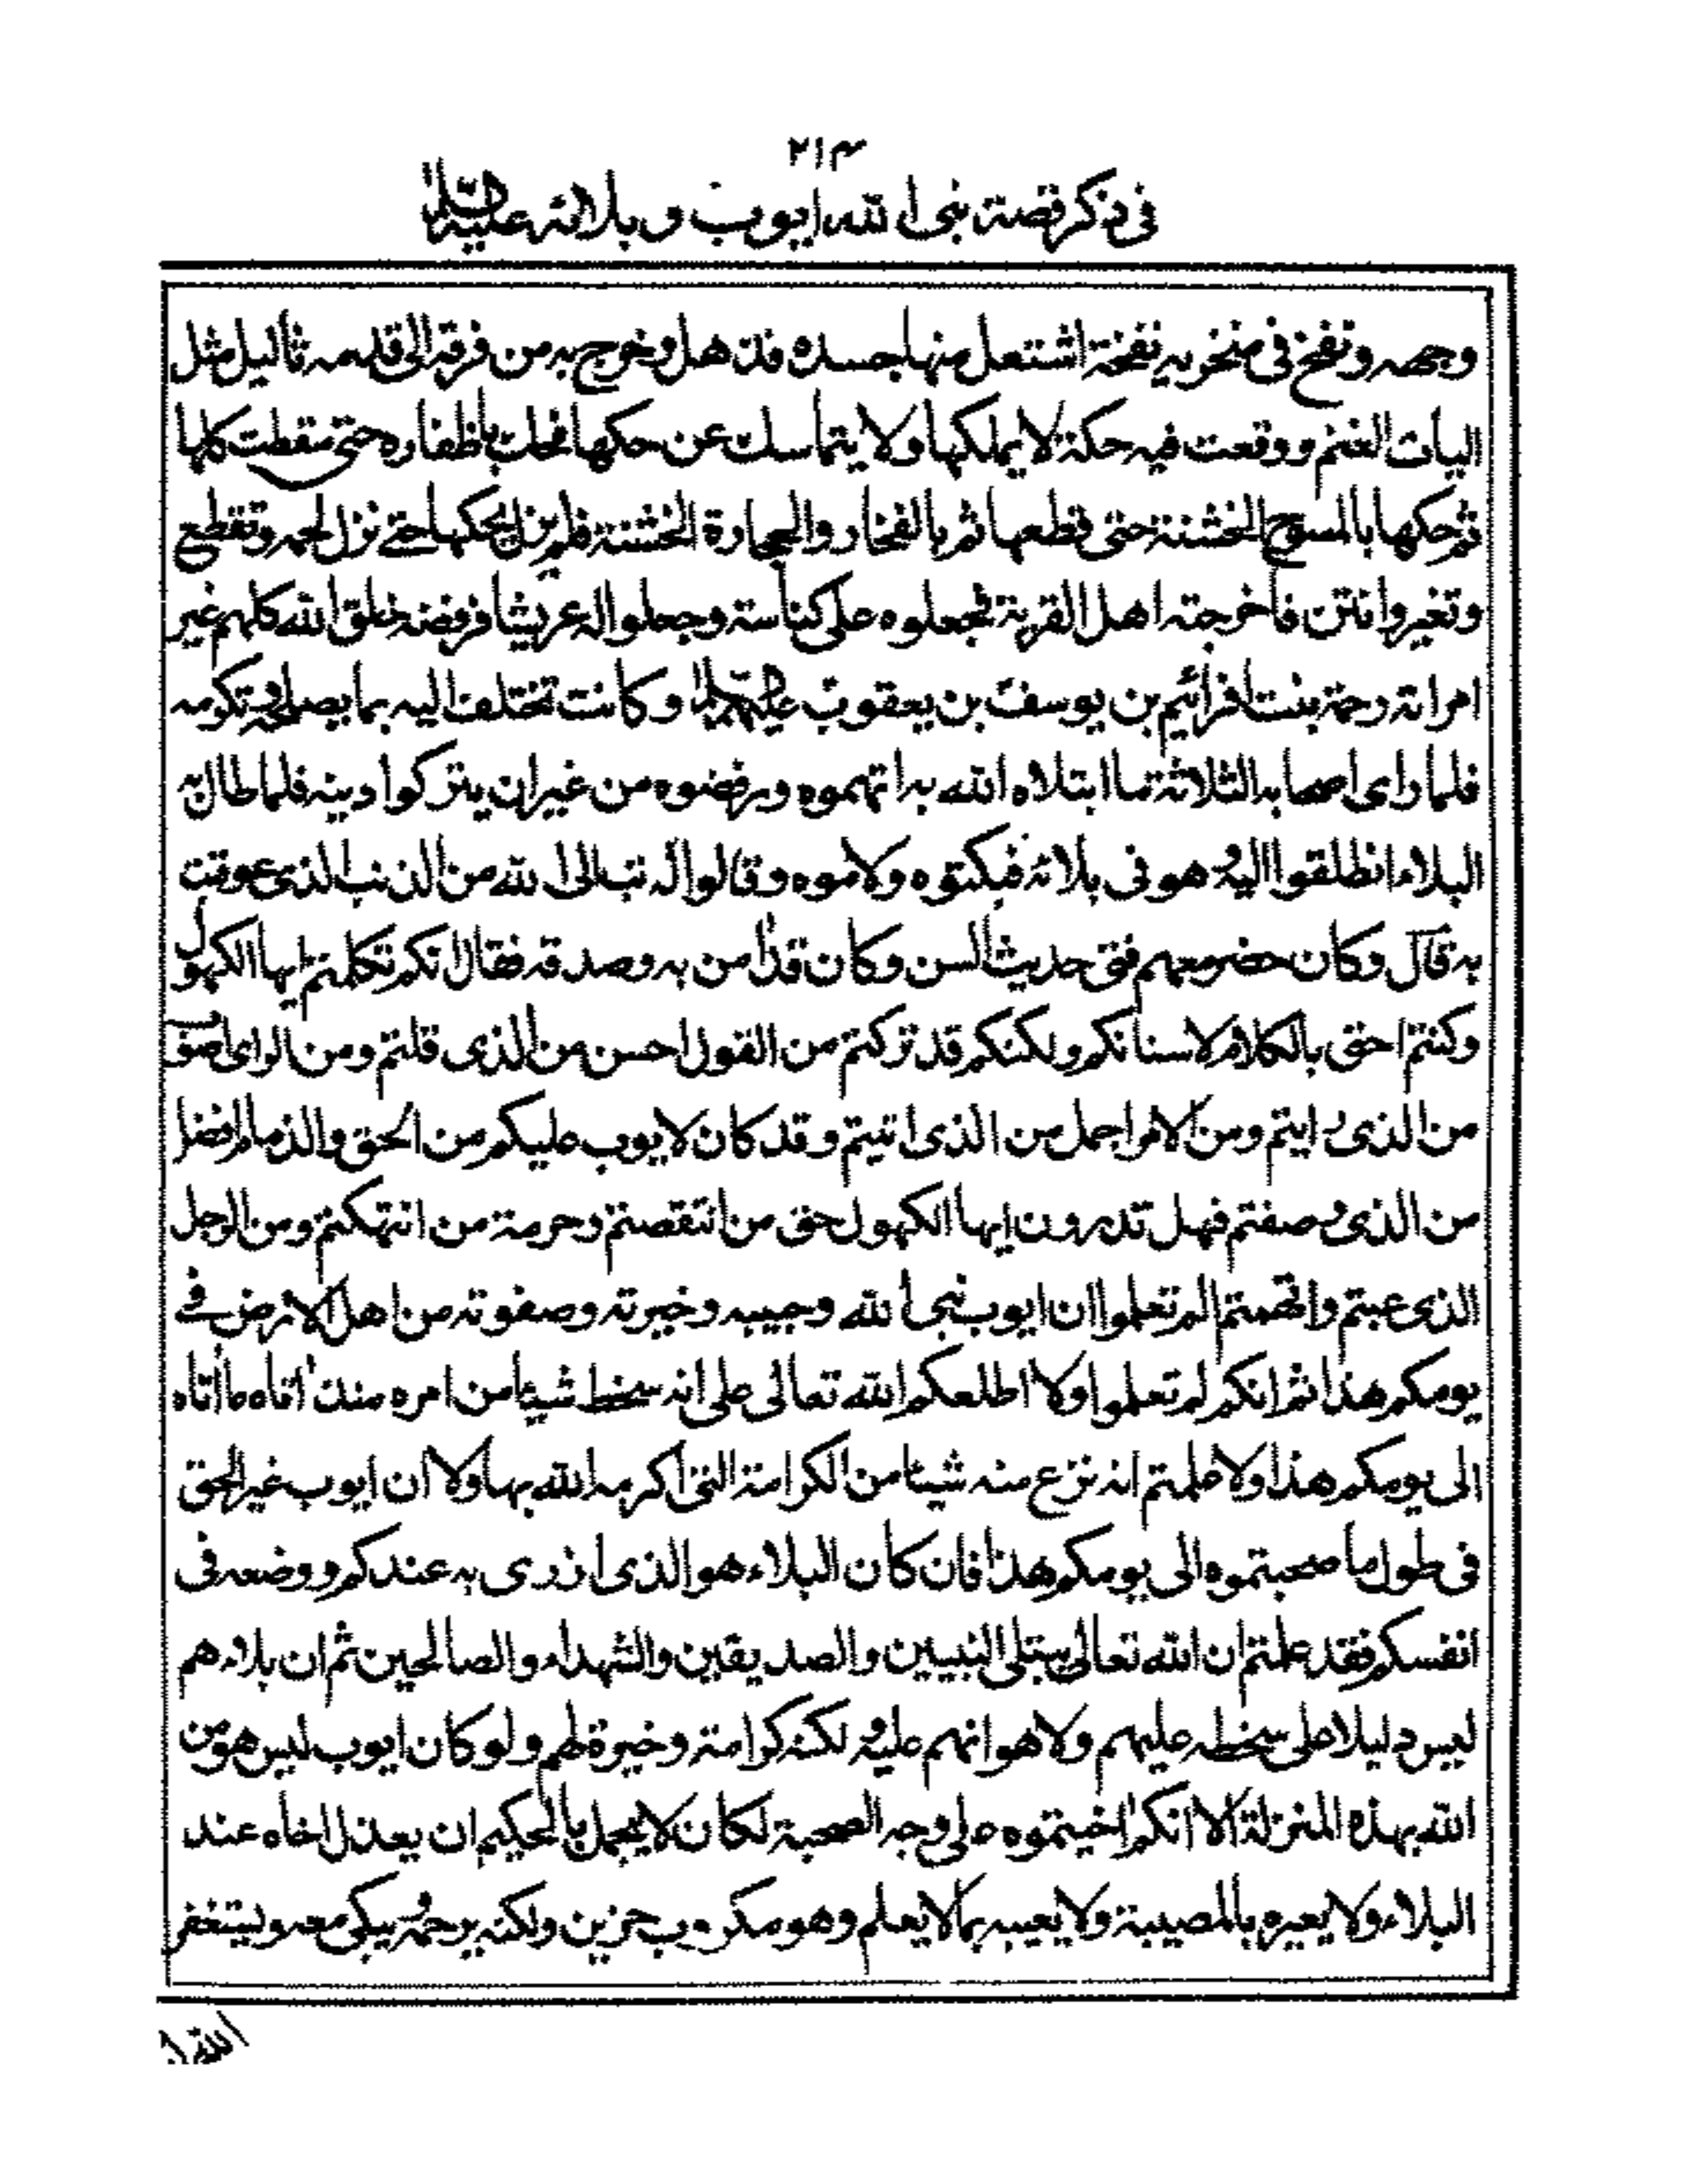 ٢١٣
في ذكر قصة نبي الله ايوب وبلائه عليه السلام
وجهه ونفخ في منخريه نفخة اشتعل منها جسده فذهل وخرج به من فرقه الى قدمه ثآليل مثل
اليات الغنم ووقعت فيه حكة لا يملكها ولا يتماسك عن حكها فحك باظفاره حتى سقطت كلها
ثم حكها بالمسوح الخشنة حتى قطعها ثم بالفخار والحجارة الخشنة فلم يزل يحكها حتى نزل لحمه وتقطع
وتغير وانتن فأخرجته اهل القرية فجعلوه على كناسة وجعلوا له عريشا فرفضه خلق الله كلهم غير
امراته رحمة بنت افرائيم بن يوسف بن يعقوب عليهم السلام وكانت تختلف اليه بما يصلحه وتكرمه
فلما راى اصحابه الثلاثة ما ابتلاه الله به اتهموه ورفضوه من غير ان يتركوا دينه فلما طال به
البلاء انطلقوا اليه وهو في بلائه فبكتوه ولاموه وقالوا له تب الى الله من الذنب الذى عوقبت
به قال وكان حضر معهم فتى حديث السن وكان قد امن به وصدقه فقال انكم تكلمتم ايها الكهول
وكنتم احق بالكلام لاسنانكم ولكنكم قد تركتم من القول احسن من الذى قلتم ومن الراى اصوب
من الذى رايتم ومن الامر اجمل من الذى اتيتم وقد كان لايوب عليكم من الحق والذمام افضل
من الذى وصفتم فهل تدرون ايها الكهول حق من انتقصتم وحرمة من انتهكتم ومن الرجل
الذى عبتم واتهمتم الم تعلموا ان ايوب نبي الله وحبيبه وخيرته وصفوته من اهل الارض في
يومكم هذا ثم انكم لم تعلموا ولا اطلعكم الله تعالى على انه سخط شيئا من امره منذ أتاه ما أتاه
الى يومكم هذا ولا علمتم انه نزع منه شيئا من الكرامة التى اكرمه الله بها ولا ان ايوب غير الحق
في طول ما صحبتموه الى يومكم هذا فان كان البلاء هو الذى ازرى به عندكم ووضعه في
انفسكم فقد علمتم ان الله تعالى يبتلى النبيين والصديقين والشهداء والصالحين ثم ان بلاءهم
ليس دليلا على سخطه عليهم ولا هوانهم عليه ولكنه كرامة وخيرة لهم ولو كان ايوب ليس هو من
الله بهذه المنزلة الا انكم اخيتموه على وجه الصحبة لكان لا يجمل بالحكيم ان يعذل اخاه عند
البلاء ولا يعيره بالمصيبة ولا يعيبه بما لا يعلم وهو مكروب حزين ولكنه يرحمه ويبكى معه ويستغفر